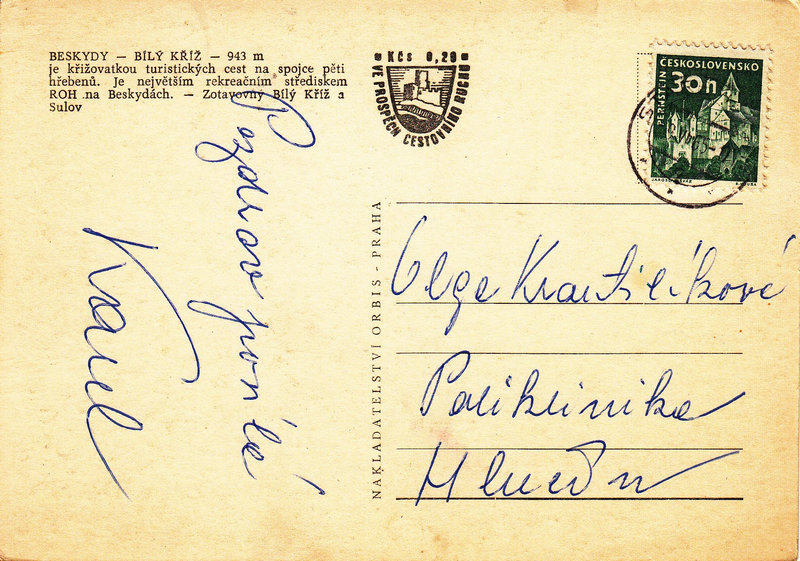 BESKYDY — BÍLÝ KŘÍŽ — 943 m
je křižovatkou turistických cest na spojce pěti
hřebenů. Je největším rekreačním střediskem
ROH na Beskydách. — Zotavovny Bílý Kříž a
Sulov
Kčs 0,20
VE PROSPĚCH CESTOVNÍHO RUCHU
ČESKOSLOVENSKO
30h
PERNŠTEJN
Pozdrav
Karel
NAKLADATELSTVÍ ORBIS - PRAHA
Olga
Poliklinika
Hlučín